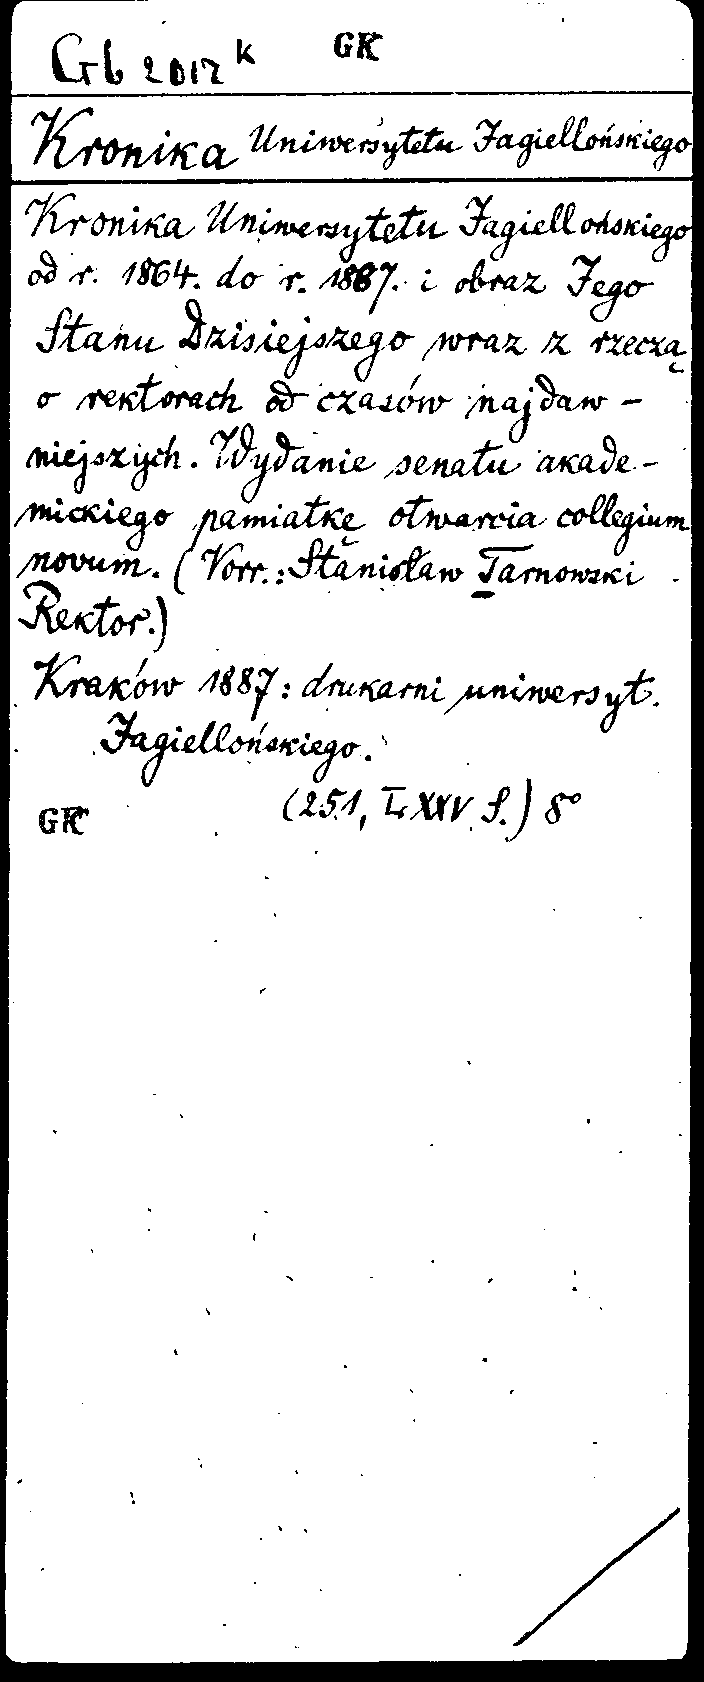 Gb 2017 k GK
Kronika Uniwersytetu Jagiellońskiego
Kronika Uniwersytetu Jagiellońskiego
od r. 1864. do r. 1887. i obraz Jego
Stanu Dzisiejszego wraz z rzeczą
o rektorach od czasów najdaw-
niejszych. Wydanie senatu akade-
mickiego pamiatkę otwarcia collegium
novum. (Vorr.: Stanisław Tarnowski
Rektor.)
Kraków 1887: drukarni uniwersyt.
Jagiellońskiego.
GK (251, LXXV S.) 8°